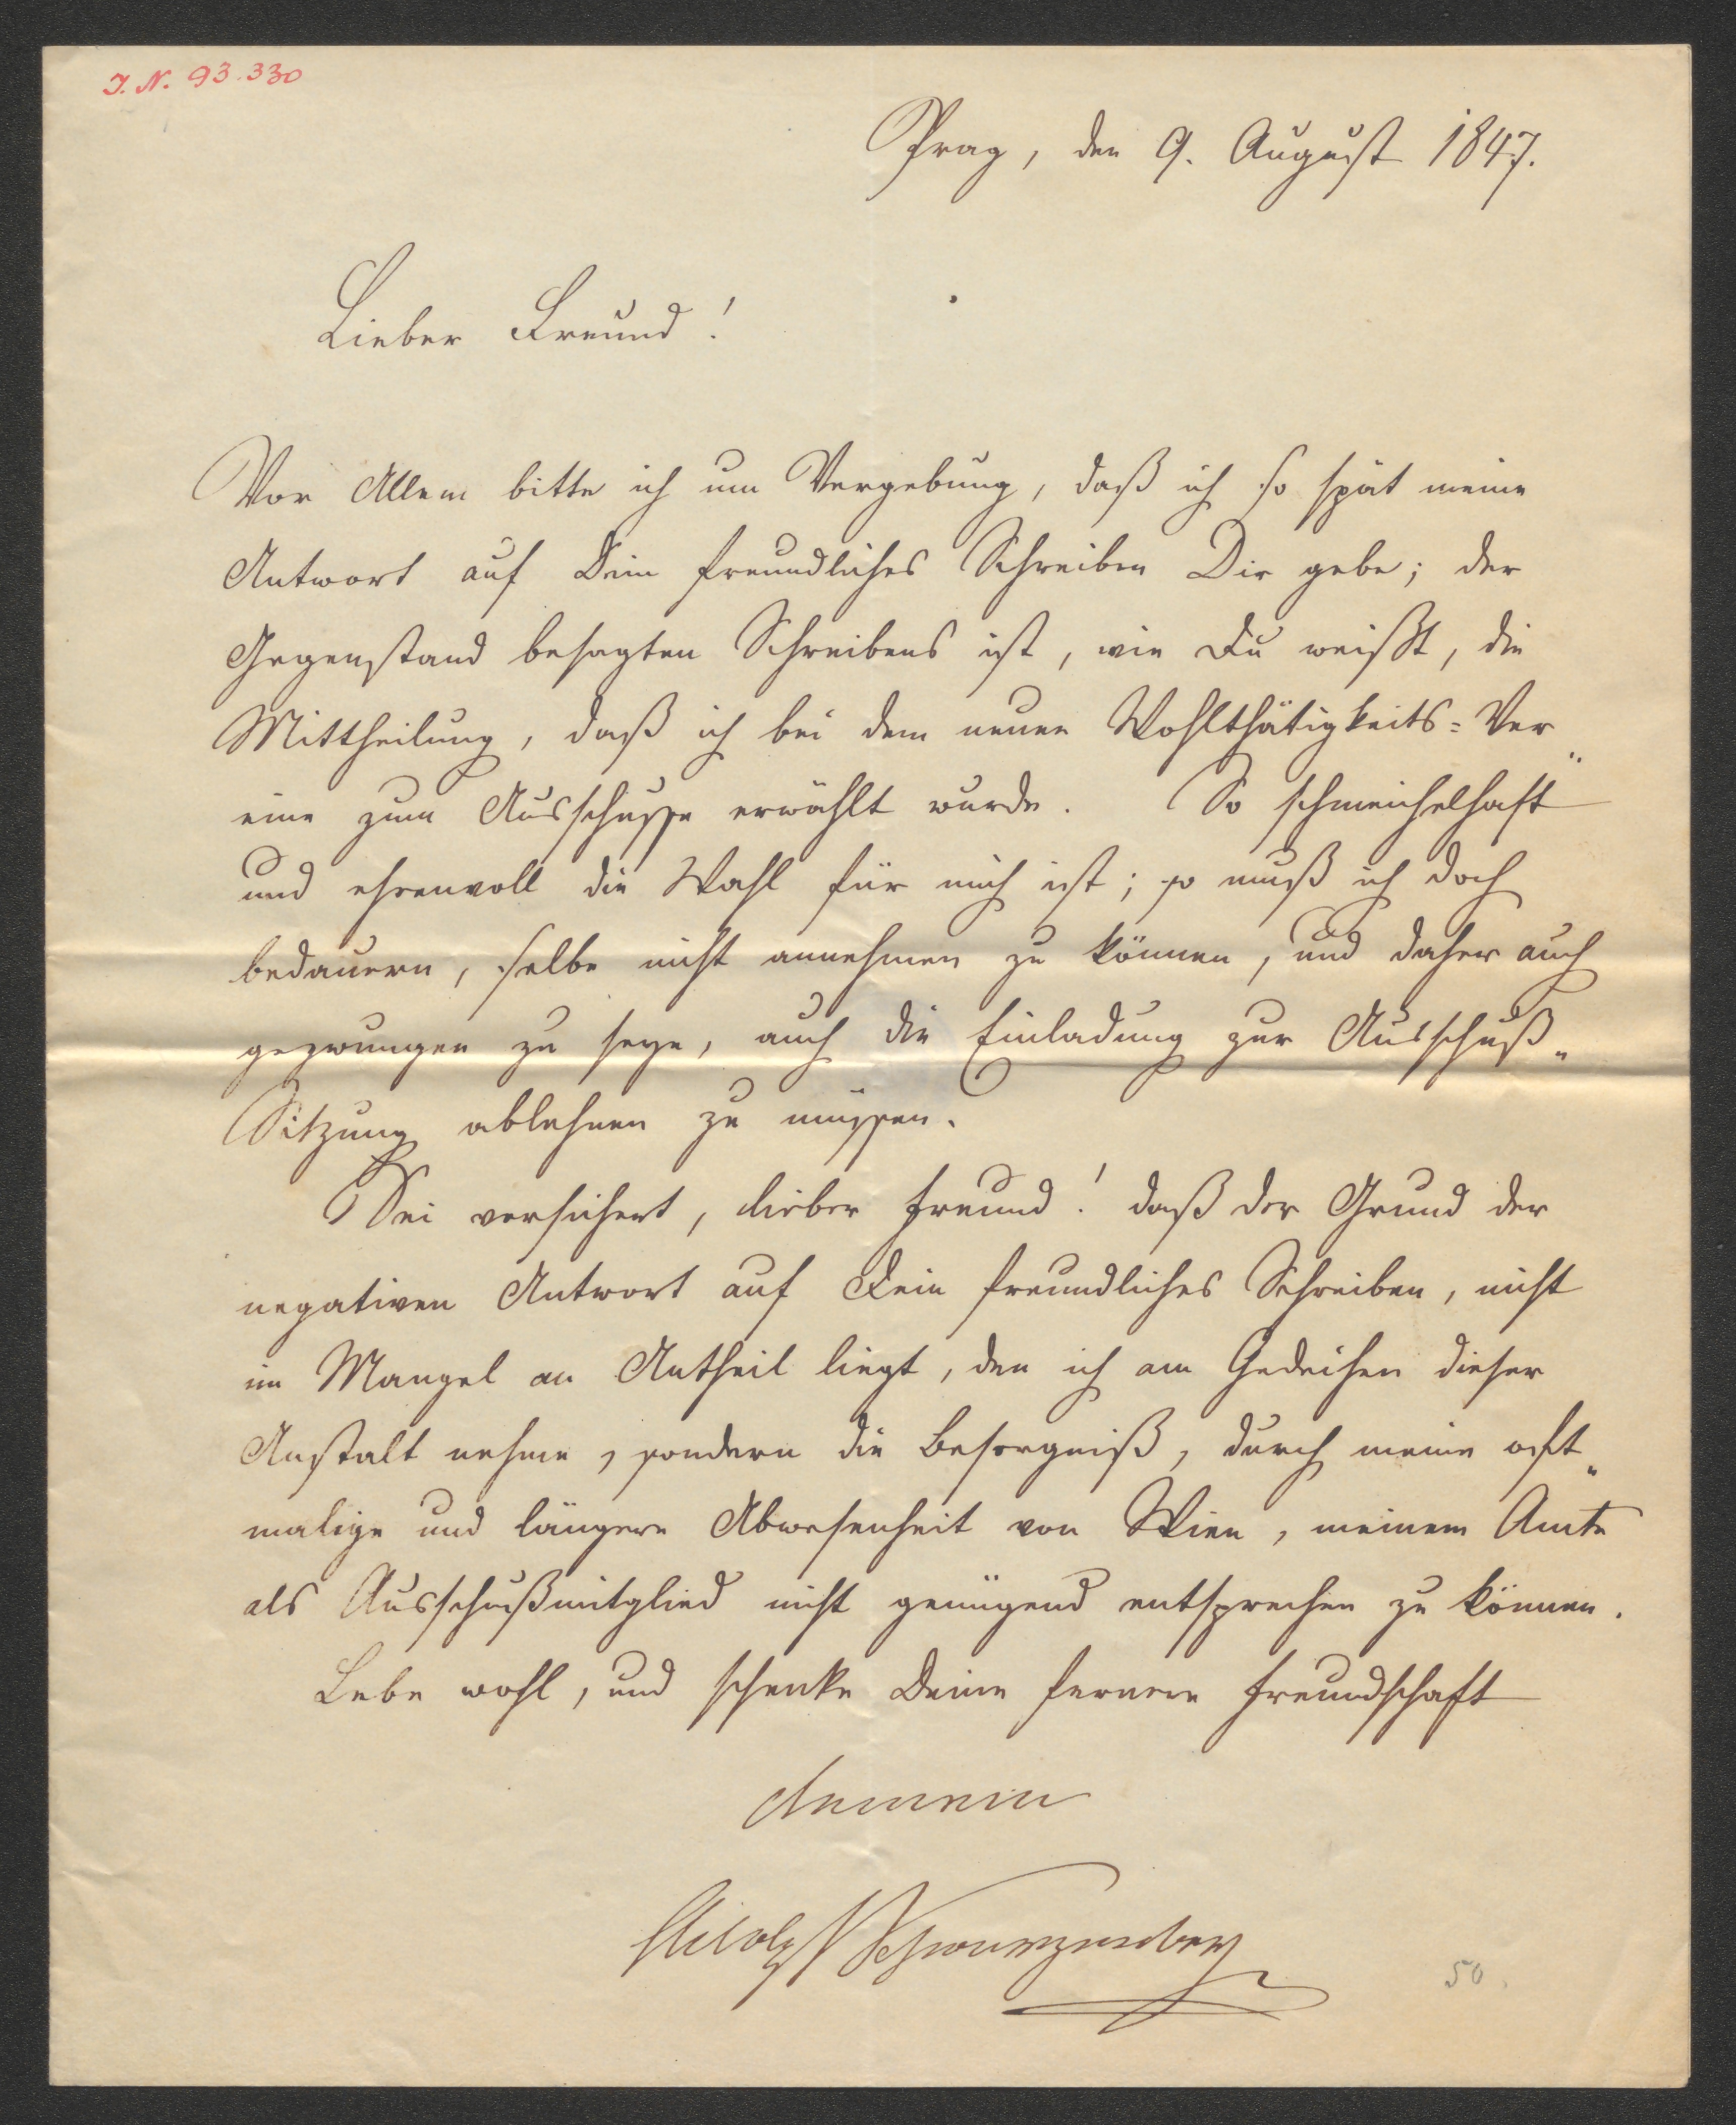 J. N. 93.330
Prag, den 9. August 1847.
Lieber Freund!
Vor Allem bitte ich um Vergebung, daß ich so spät meine
Antwort auf Dein freundliches Schreiben Dir gebe; der
Gegenstand besagten Schreibens ist, wie Du weißt, die
Mittheilung, daß ich bei dem neuen Wohlthätigkeits=Ver„
eine zum Ausschusse erwählt wurde. So schmeichelhaft
und ehrenvoll die Wahl für mich ist; so muß ich doch
bedauern, selbe nicht annehmen zu können, und daher auch
gezwungen zu seyn, auch die Einladung zur Ausschuß„
Sitzung ablehnen zu müssen.
Sei versichert, lieber Freund! daß der Grund der
negativen Antwort auf Dein freundliches Schreiben, nicht
im Mangel an Antheil liegt, den ich am Gedeihen dieser
Anstalt nehme, sondern die Besorgniß, durch meine oft„
malige und längere Abwesenheit von Wien, meinem Amte
als Ausschußmitglied nicht genügend entsprechen zu können.
Lebe wohl, und schenke Deine fernere Freundschaft
Adolf Schwarzenberg
50.